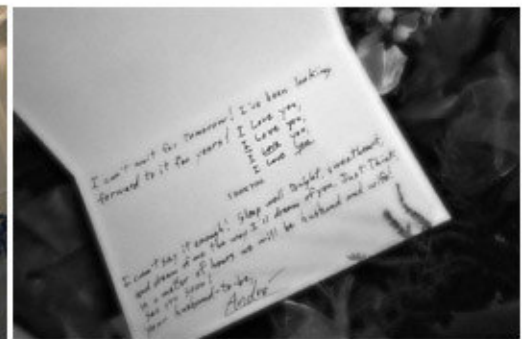 I can't wait for tomorrow! I've been looking
forward to it for years! I love you,
I love you,
I love you,
I love you,
I love you
I can't say it enough! Sleep well tonight, sweetheart,
and dream of me the way I'll dream of you. Just think,
in a matter of hours we will be husband and wife!
See you soon!
your husband-to-be,
André